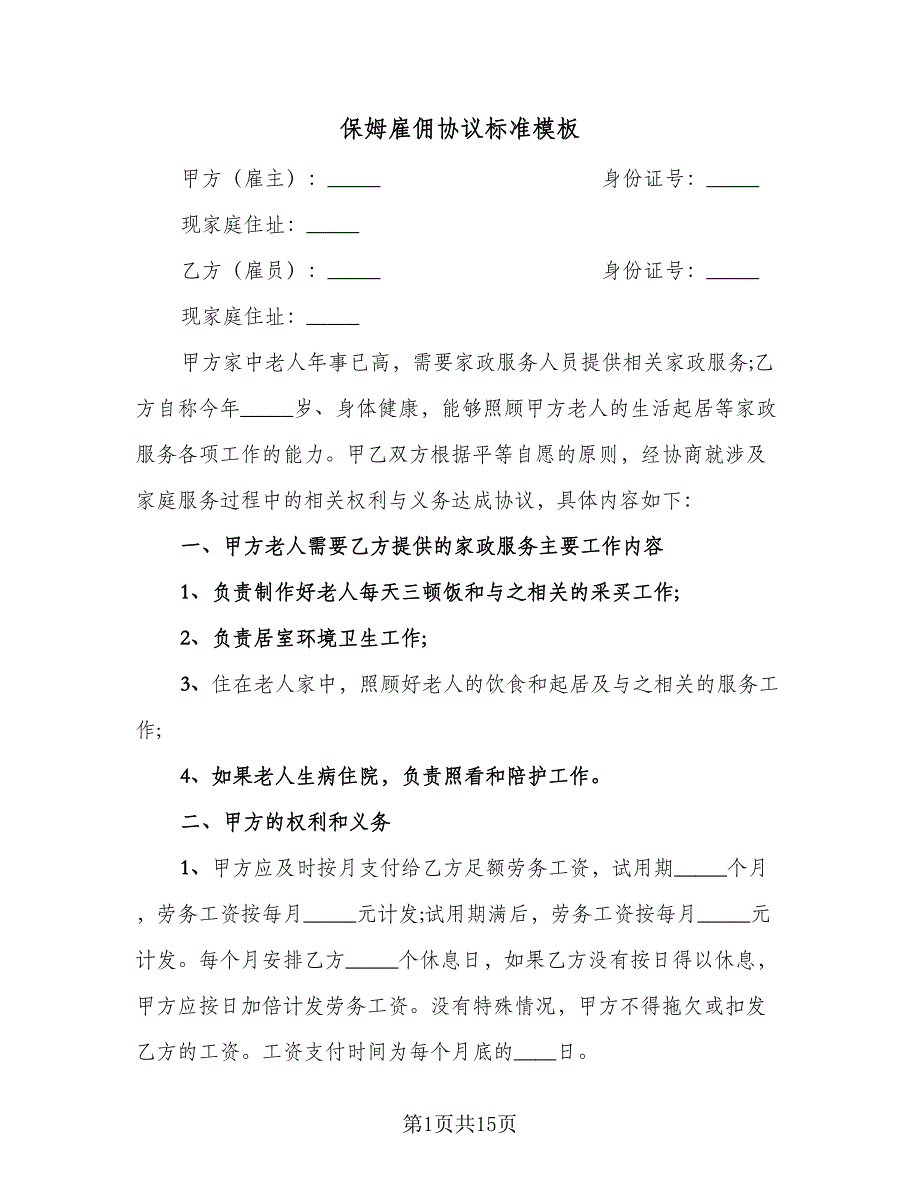 保姆雇佣协议标准模板
甲方（雇主）：_____ 身份证号：_____
现家庭住址：_____
乙方（雇员）：_____ 身份证号：_____
现家庭住址：_____
甲方家中老人年事已高，需要家政服务人员提供相关家政服务;乙
方自称今年_____岁、身体健康，能够照顾甲方老人的生活起居等家政
服务各项工作的能力。甲乙双方根据平等自愿的原则，经协商就涉及
家庭服务过程中的相关权利与义务达成协议，具体内容如下：
一、甲方老人需要乙方提供的家政服务主要工作内容
1、负责制作好老人每天三顿饭和与之相关的采买工作;
2、负责居室环境卫生工作;
3、住在老人家中，照顾好老人的饮食和起居及与之相关的服务工
作;
4、如果老人生病住院，负责照看和陪护工作。
二、甲方的权利和义务
1、甲方应及时按月支付给乙方足额劳务工资，试用期_____个月
，劳务工资按每月_____元计发;试用期满后，劳务工资按每月_____元
计发。每个月安排乙方_____个休息日，如果乙方没有按日得以休息，
甲方应按日加倍计发劳务工资。没有特殊情况，甲方不得拖欠或扣发
乙方的工资。工资支付时间为每个月底的____日。
第1页共15页